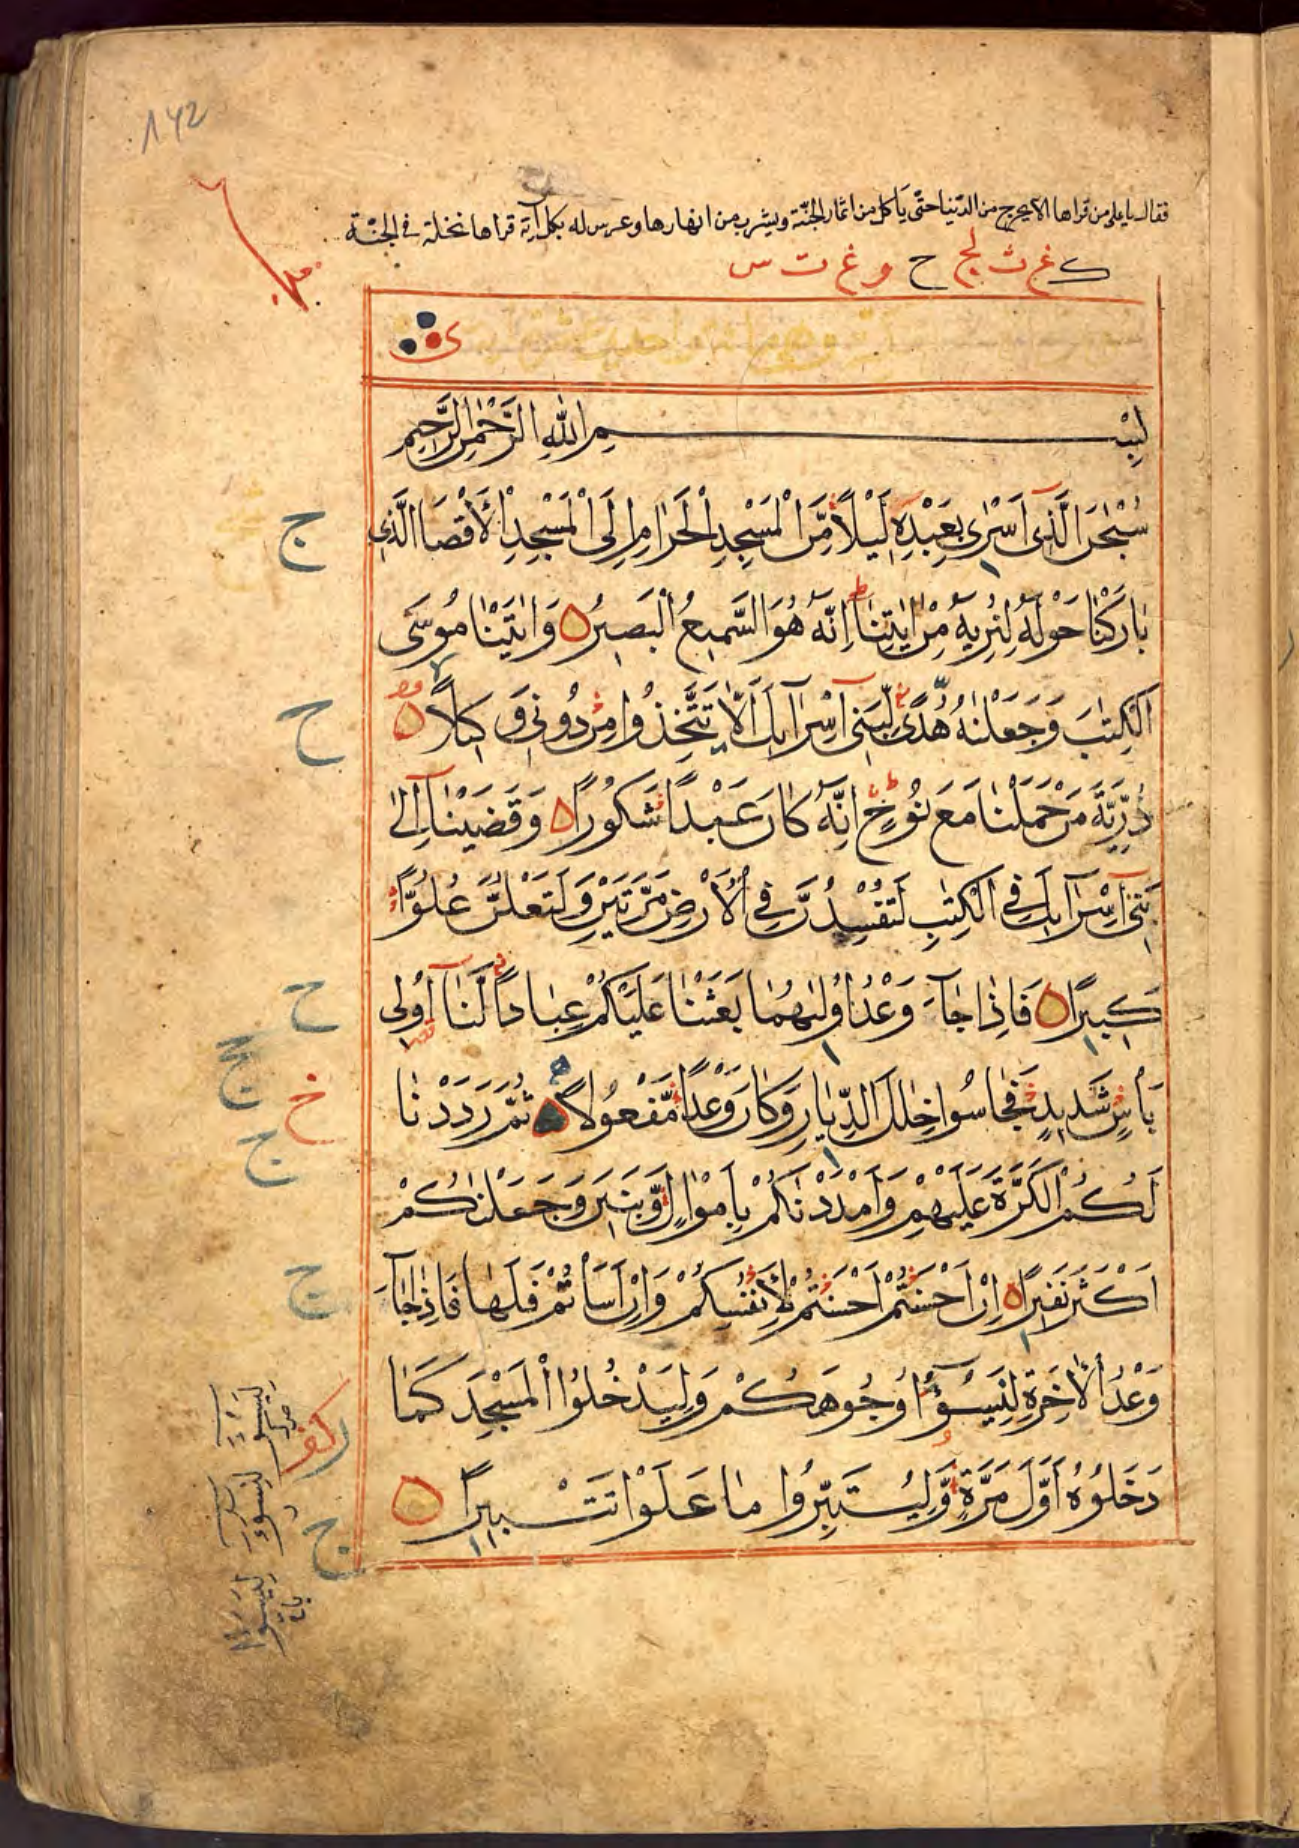 142
فقال يا علي من قراها لا يخرج من الدنيا حتى يأكل من اثمار الجنّة ويشرب من انهارها وغرس له بكل آية قراها نخلة في الجنّة
ك غ ث لج ح و غ ت س
وهى مائة واحدى عشرة اية
بِسْمِ اللهِ الرَّحْمٰنِ الرَّحِيمِ
سُبْحٰنَ الَّذِى اَسْرٰى بِعَبْدِهٖ لَيْلاً مِّنَ الْمَسْجِدِ الْحَرَامِ اِلَى الْمَسْجِدِ الْاَقْصَا الَّذِى
بَارَكْنَا حَوْلَهُ لِنُرِيَهُ مِنْ اٰيٰتِنَا اِنَّهُ هُوَ السَّمِيعُ الْبَصِيرُ وَاٰتَيْنَا مُوسَى
الْكِتٰبَ وَجَعَلْنٰهُ هُدًى لِّبَنِى اِسْرَآئِلَ اَلَّا تَتَّخِذُوا مِنْ دُونِى وَكِيلاً
ذُرِّيَّةَ مَنْ حَمَلْنَا مَعَ نُوحٍ اِنَّهُ كَانَ عَبْدًا شَكُورًا وَقَضَيْنَا اِلٰى
بَنِى اِسْرَآئِلَ فِى الْكِتٰبِ لَتُفْسِدُنَّ فِى الْاَرْضِ مَرَّتَيْنِ وَلَتَعْلُنَّ عُلُوًّا
كَبِيرًا فَاِذَا جَآءَ وَعْدُ اُولٰىهُمَا بَعَثْنَا عَلَيْكُمْ عِبَادًا لَّنَا اُولِى
بَاْسٍ شَدِيدٍ فَجَاسُوا خِلٰلَ الدِّيَارِ وَكَانَ وَعْدًا مَّفْعُولاً ثُمَّ رَدَدْنَا
لَكُمُ الْكَرَّةَ عَلَيْهِمْ وَاَمْدَدْنَاكُمْ بِاَمْوَالٍ وَّبَنِينَ وَجَعَلْنٰكُمْ
اَكْثَرَ نَفِيرًا اِنْ اَحْسَنْتُمْ اَحْسَنْتُمْ لِاَنْفُسِكُمْ وَاِنْ اَسَاْتُمْ فَلَهَا فَاِذَا جَآءَ
وَعْدُ الْاٰخِرَةِ لِيَسُوٓؤُا وُجُوهَكُمْ وَلِيَدْخُلُوا الْمَسْجِدَ كَمَا
دَخَلُوْهُ اَوَّلَ مَرَّةٍ وَّلِيُتَبِّرُوا مَا عَلَوْا تَتْبِيرًا
ج
ح
ح
ج
خ
ج
ج
ج